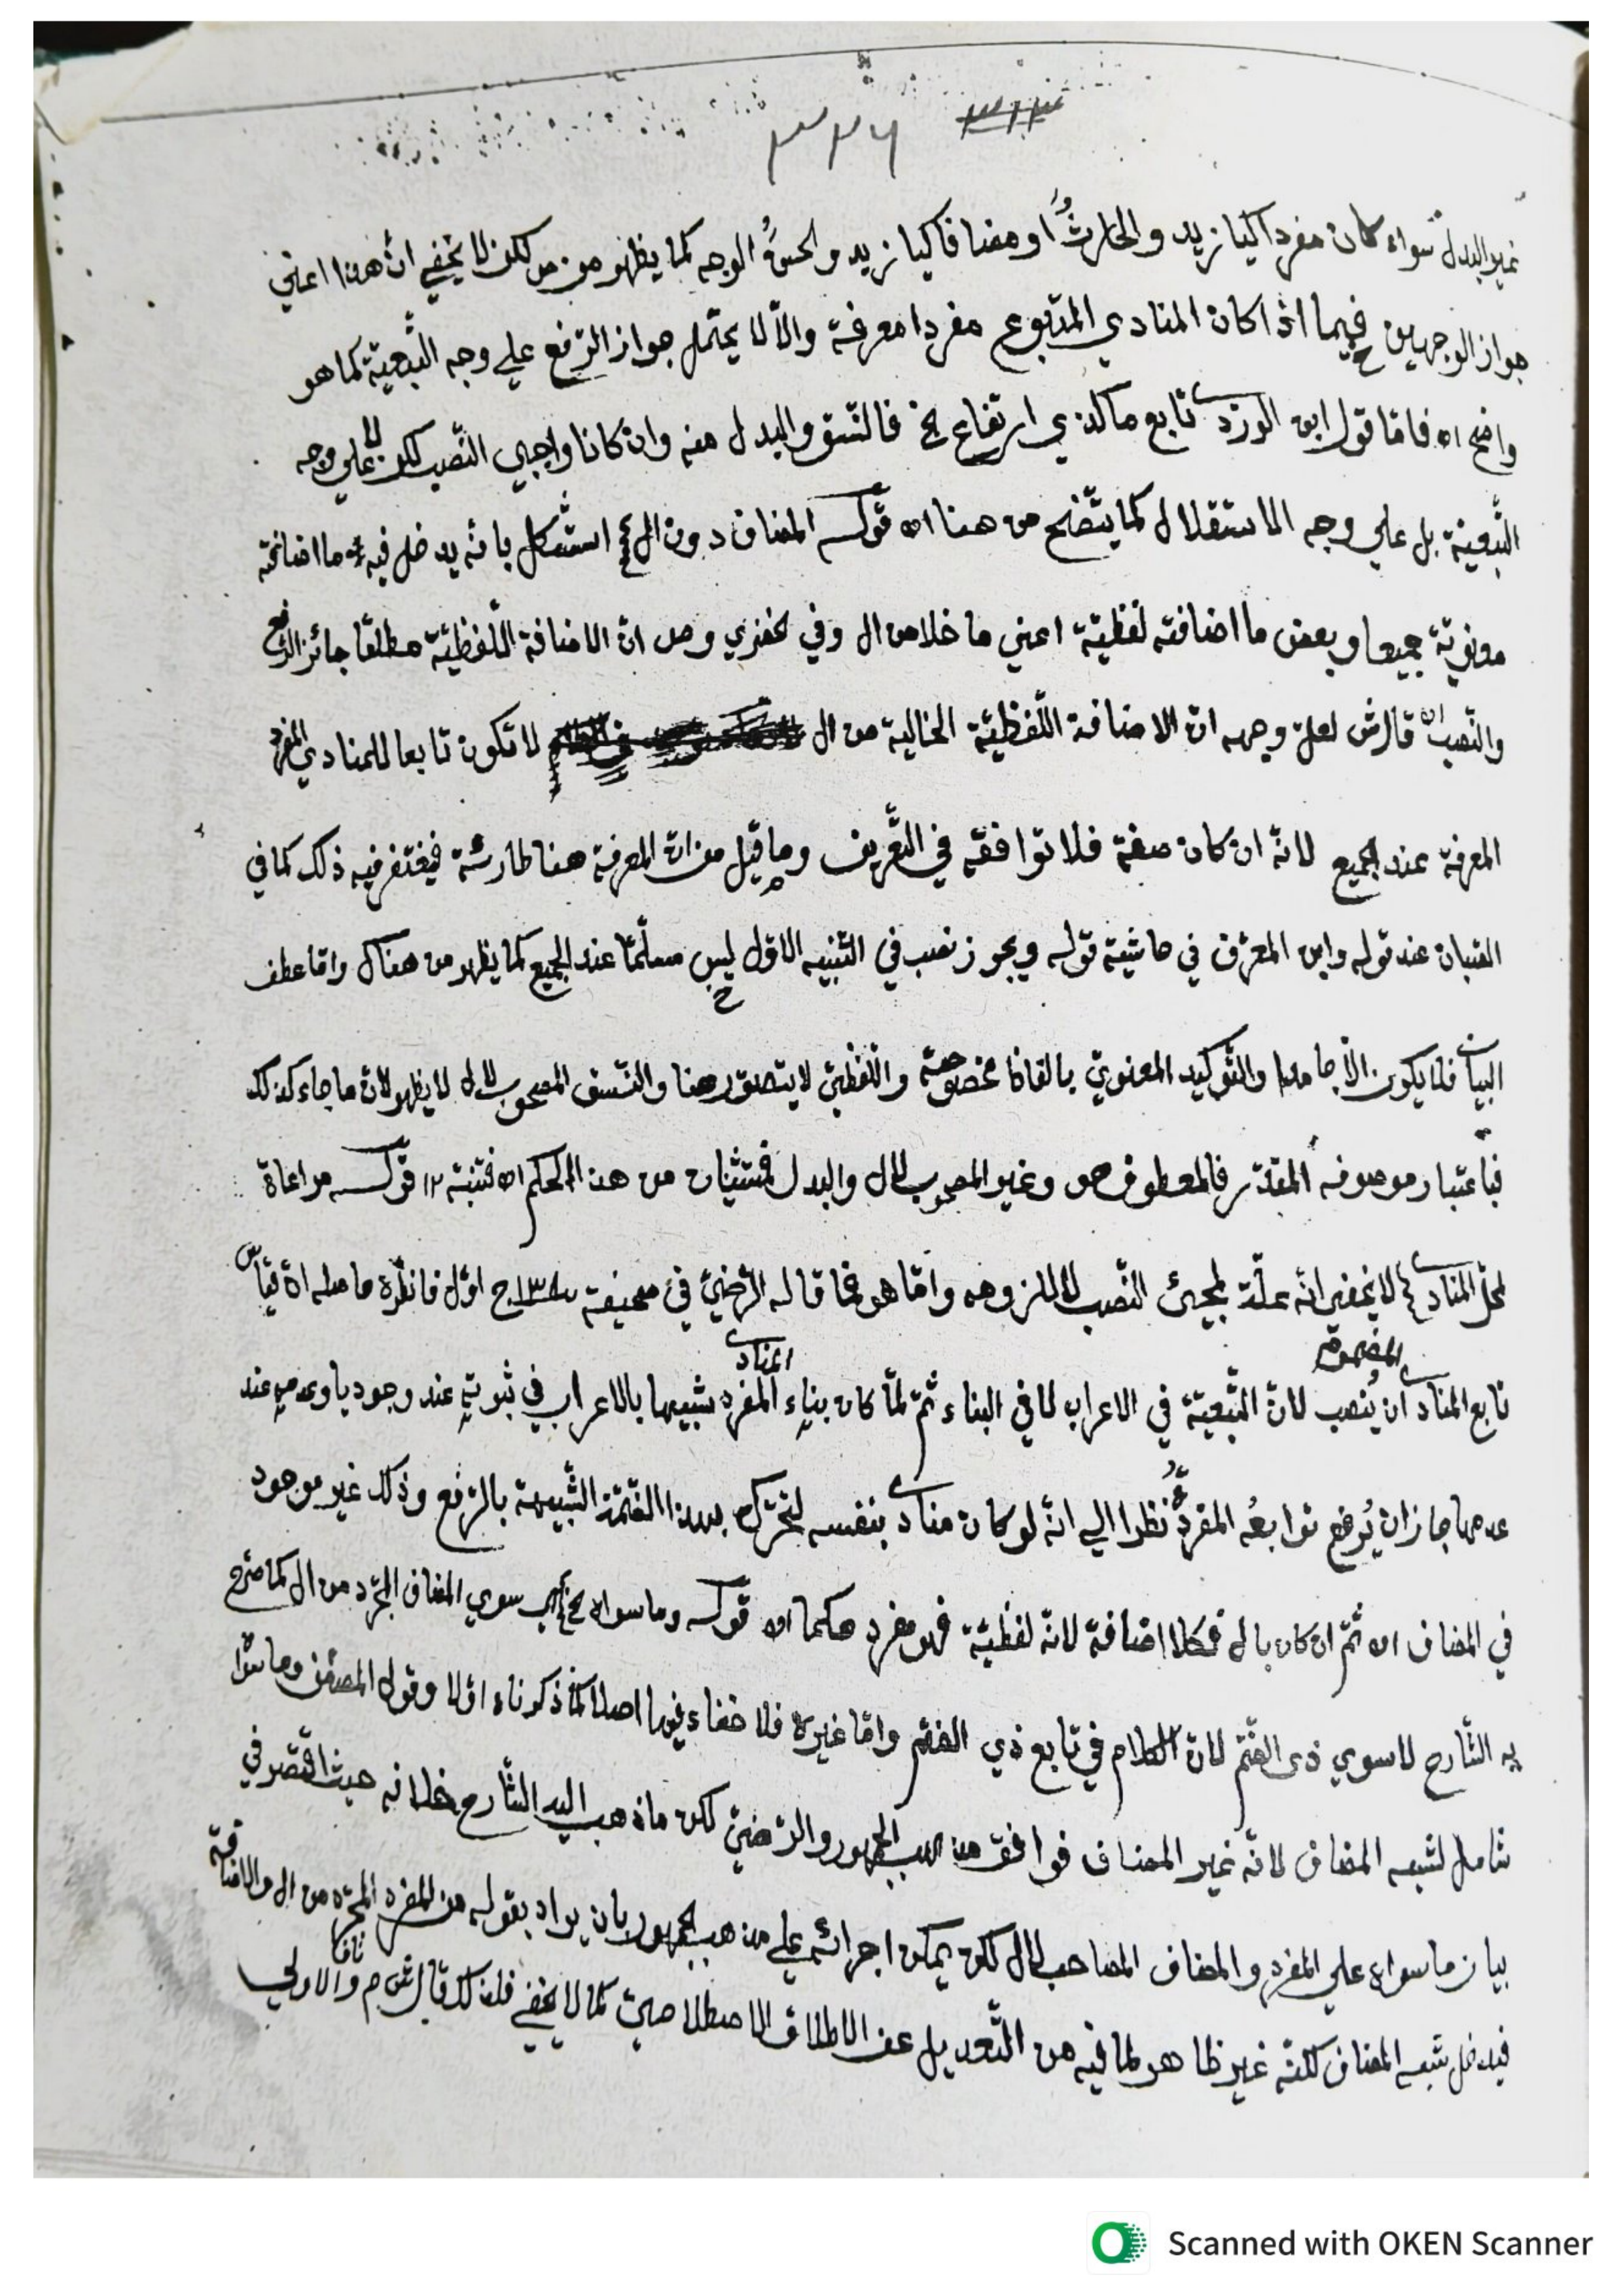 ٣١٣ ٣٢٦
غير البدل سواء كان مفردا كيا زيد والحارثُ او مضافا كيا زيد والحسنُ الوجه كما يظهر من لكن لا يخفي ان هذا اعني
جواز الوجهين فيما اذا كان المنادي المتبوع مفردا معرفة والّا لا يحتمل جواز الرّفع علي وجه التّبعيّة كما هو
واضح اه فامّا قول ابن الوردي تابع ما كالذي ارتفاع الخ فالنّسق والبدل منه وان كانا واجبي النّصب لكن لا علي وجه
التّبعيّة بل علي وجه الاستقلال كما يتّضح من هنا اه قوله المضاف دون ال الخ استشكل بانّه يدخل فيه ما اضافته
معنويّة جميعا وبعض ما اضافته لفظيّة اعني ما خلا من ال وفي خضري وص انّ الاضافة اللّفظيّة مطلقا جائز الرّفع
والنّصب اه قال ش لعلّ وجهه انّ الاضافة اللّفظيّة الخالية من ال لا تكون تابعا للمنادي المفرد
المعرفة عند الجميع لانّه ان كان صفة فلا توافقه في التّعريف وما قيل من انّ المعرفة هنا طارئة فيغتفر فيه ذلك كما في
الصّبان عند قوله وابن المعرّف في حاشية قوله ويجوز نصب في التّنبيه الاوّل ليس مسلّما عند الجميع كما يظهر من هناك وامّا عطف
البيان فلا يكون الّا جامدا والتّوكيد المعنويّ بالفاظ مخصوصة واللّفظيّ لا يتصوّر هنا والنّسق المصحوب لال لا يظهر لانّ ما جاء كذلك
فباعتبار موصوفه المقدّر فالمعطوف هو وغير المصحوب لال والبدل مستثنيان من هذا الحكم اه فتنبّه ١٢ قوله مراعاة
لمحلّ المنادي لا يخفي انّه علّة لمجيئ النّصب لا للزومه وامّا هو فما قاله الرّضيّ في صحيفة ١٣٨ ج اوّل فانظره حاصله انّ قياس
تابع المنادي المضموم ان يُنصب لانّ التّبعيّة في الاعراب لا في البناء ثمّ لمّا كان بناء المنادي المفرد شبيها بالاعراب في ثبوته عند وجود يا وعدمه عند
عدمها جاز ان يُرفع توابعُه المفردةُ نظرا الي انّه لو كان منادي بنفسه لتحرّك بهذا الضّمّة الشّبيهة بالرّفع وذلك غير موجود
في المضاف اه ثمّ ان كان بال فكلا اضافة لانّه لفظيّة فهو مفرد حكما اه قوله وما سواه الخ اي سوي المضاف المجرّد من ال كما صرّح
به الشّارح لا سوي ذي الضّمّ لانّ الكلام في تابع ذي الضّمّ وامّا غيره فلا خفاء فيها اصلا كما ذكرناه اوّلا وقول المصنّف وما سواه
شامل لشبه المضاف لانّه غير المضاف فوافق مذهب الجمهور والرّضيّ لكن ما ذهب اليه الشّارح خلافه حيث اقتصر في
بيان ما سواه علي المفرد والمضاف المصاحب لال لكن يمكن اجرائه علي مذهب الجمهور بان يراد بقوله من المفرد المجرّد من ال والاضافة
فيدخل شبه المضاف لكنّه غير ظاهر لما فيه من التّعديل عن الاطلاق الاصطلاحيّ كما لا يخفي فلذلك قال ش م والاولي
Scanned with OKEN Scanner